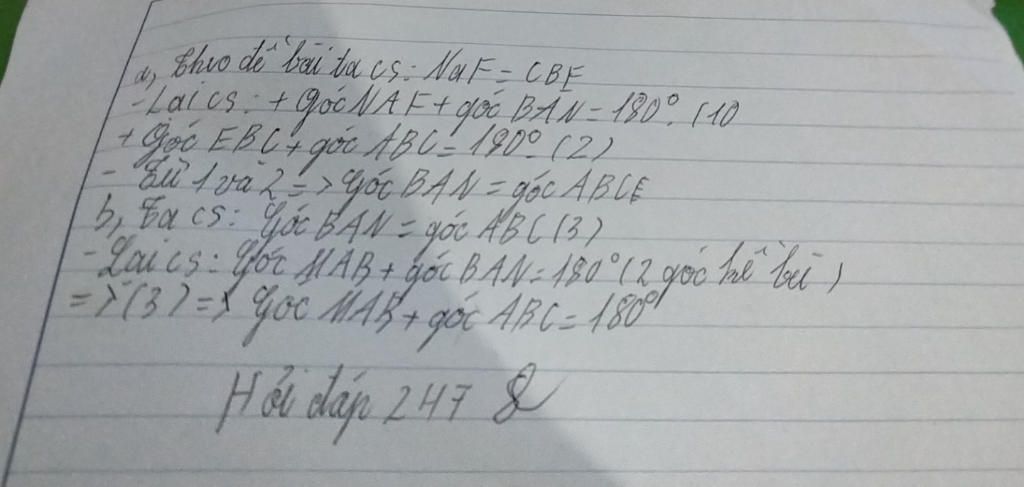 a, Theo đề bài ta cs: NaF = CBE
- Lại cs: + Góc NAF + góc BAN = 180°. (10
+ Góc EBC + góc ABC = 180°. (2)
- Từ 1 và 2 => Góc BAN = góc ABCE
b, Ta cs: Góc BAN = góc ABC (3)
- Lại cs: Góc MAB + góc BAN = 180° (2 góc kề bù)
=> (3) => Góc MAB + góc ABC = 180°
Hỏi đáp 247